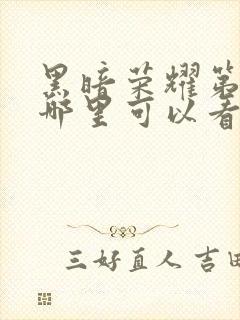 黑暗荣耀第
哪里可以看
三好直人 吉田